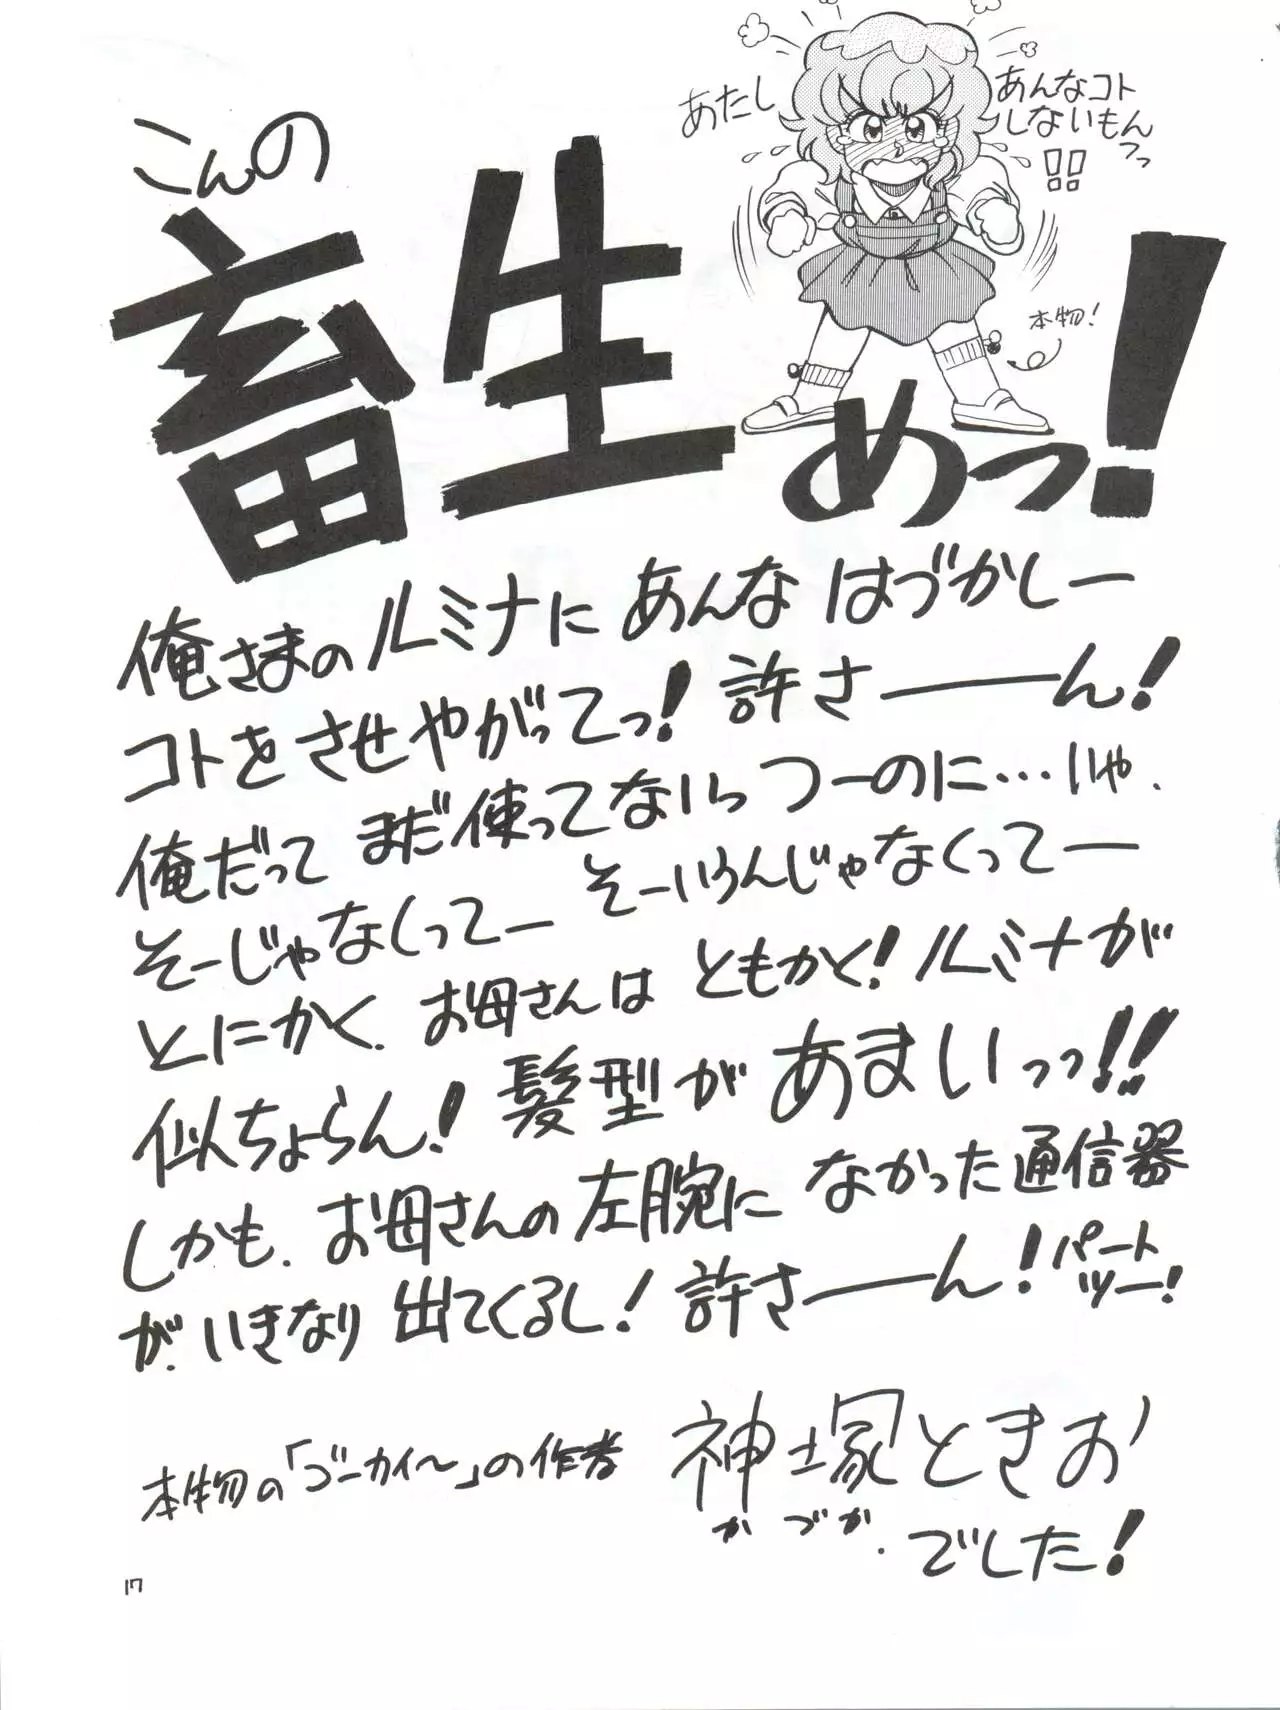 あたし
あんなコト
しないもんっっ
!!
本物!
こんの
畜生めっ!
俺さまのルミナにあんなはづかしー
コトをさせやがってっ!許さーーん!
俺だってまだ使ってないっつーのに…いや、
そーじゃなくってー そーいうんじゃなくってー
とにかく、お母さんはともかく!ルミナが
似ちょらん!髪型があまいっっ!!
しかも、お母さんの左腕になかった通信器
が、いきなり出てくるし!許さーーん!パート
ツー!
本物の「ゴーカイ〜」の作者 神塚ときお
かづか、でした!
17